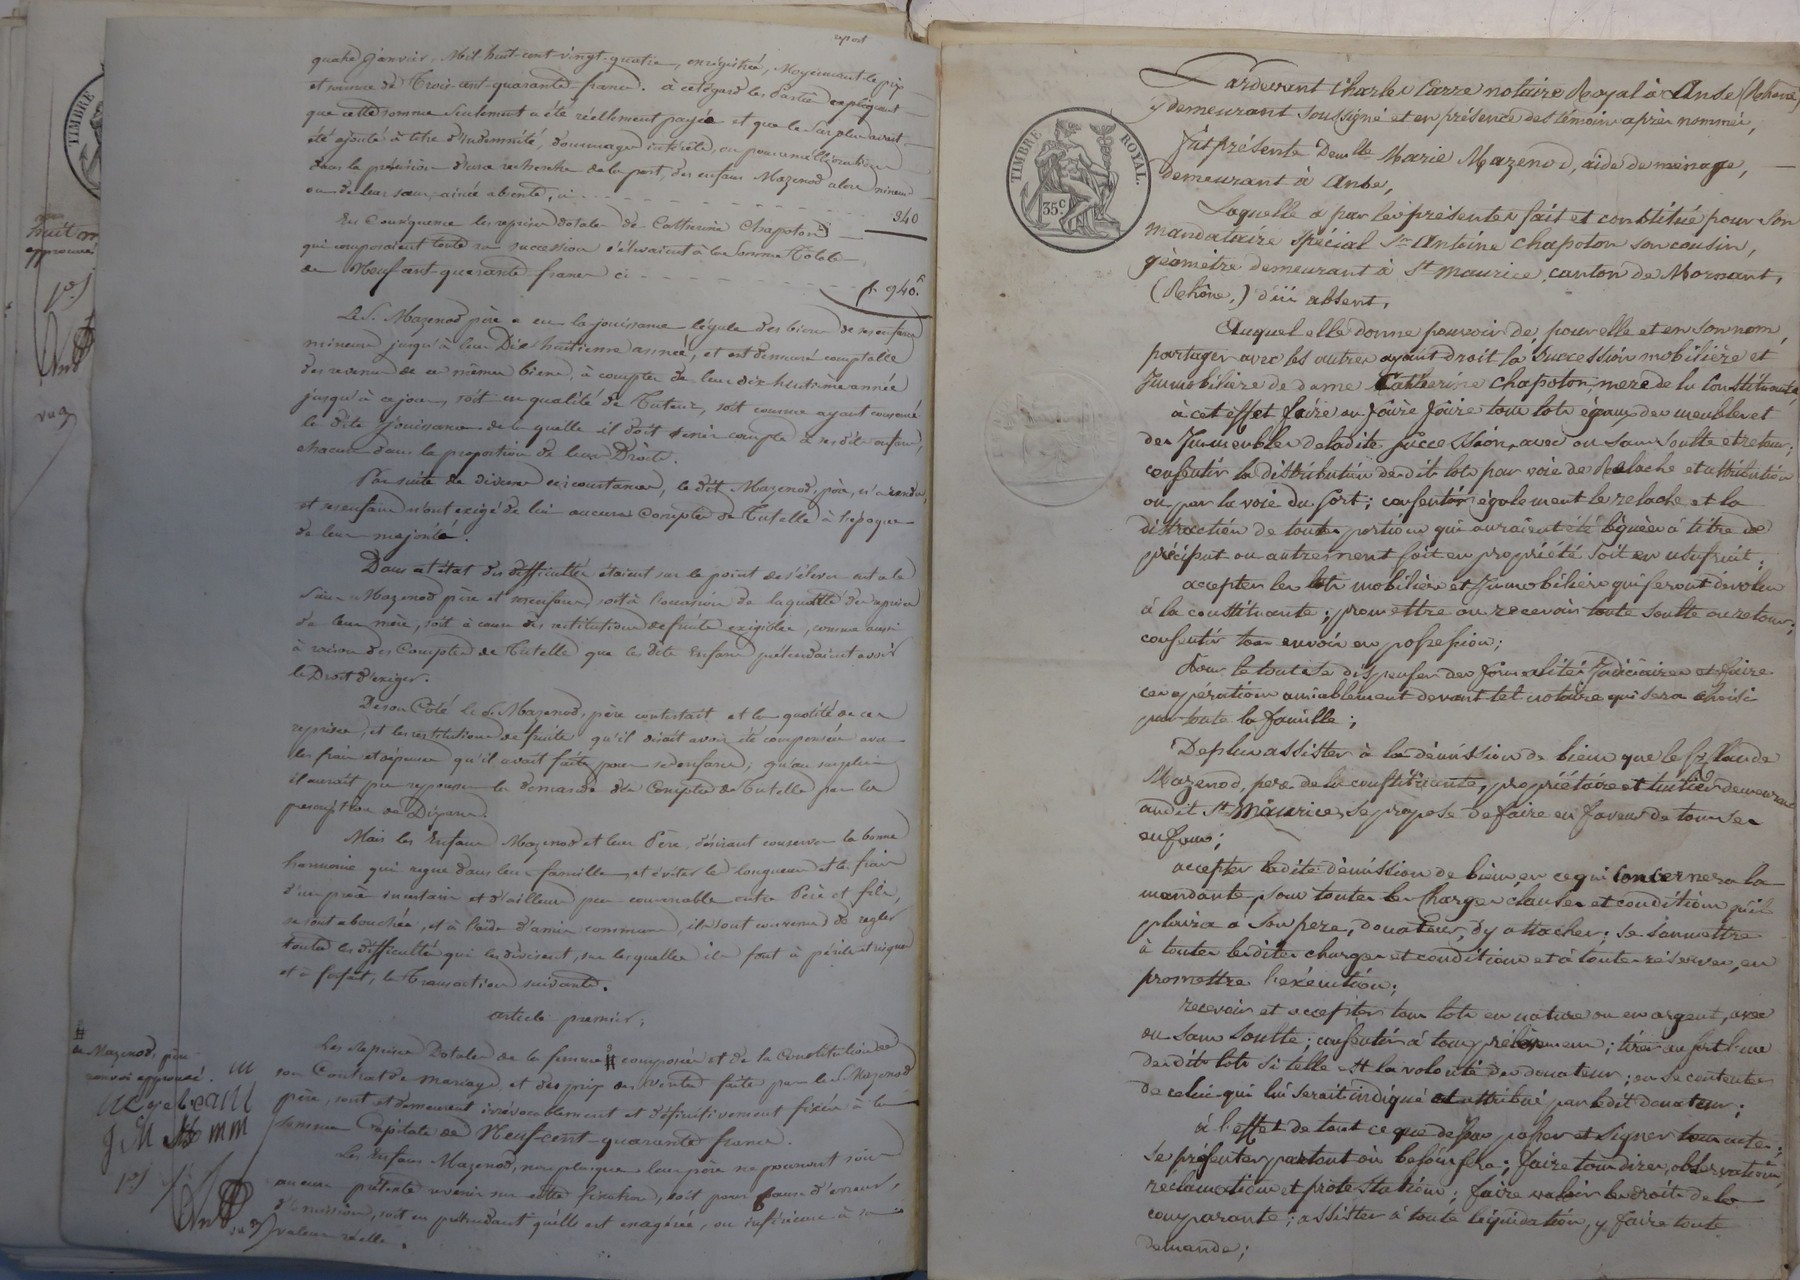 report
quatre janvier, Mil huit cent vingt quatre, enregistré, Moyennant le prix
et somme de Trois cent quarante francs. à cet égard les Parties expliquent
que cette somme seulement a été réellement payée et que le surplus avait
été ajouté à titre d'indemnité, dommages intérêts, ou pour
dans la prévision d'une recherche de la part, des enfans Mazenod alors mineurs
ou de leur sœur ainée absente, ci 340
En Conséquence les reprises dotales de Catherine Chapoton
qui composaient toute sa succession s'élevaient à la Somme Totale
de Neuf cent quarante francs ci f. 940.
Le S. Mazenod père a eu la jouissance légale des biens de ses enfans
mineurs jusqu'à leur Dix huitième année, et est demeuré comptable
des revenus de ces mêmes biens, à compter de leur dix huitième année
jusqu'à ce jour, soit en qualité de Tuteur, soit comme ayant conservé
la dite Jouissance de laquelle il doit tenir compte à ses dits enfans,
chacun dans la proportion de leurs Droits.
Par suite de diverses circonstances, le dit Mazenod, père, n'a rendu,
et ses enfans n'ont exigé de lui aucuns Comptes de Tutelle à l'époque
de leur majorité.
Dans cet état des difficultés étaient sur le point de s'élever entre le
Sieur Mazenod père et ses enfans, soit à l'occasion de la quotité des reprises
de leur mère, soit à cause des restitutions de fruits exigibles, comme aussi
à raison des Comptes de Tutelle que les dits Enfans prétendaient avoir
le Droit d'exiger.
De son Coté le S. Mazenod, père contestait et la quotité de ces
reprises, et les restitutions de fruits qu'il disait avoir été compensées avec
les frais et dépenses qu'il avait faits pour ses enfans; qu'au surplus
il aurait pu repousser les demandes des Comptes de Tutelle par la
prescription de Dix ans.
Mais les Enfans Mazenod et leur Père, désirant conserver la bonne
harmonie qui regne dans leur famille, et éviter les longueurs et les frais
d'un procès incertain et d'ailleurs peu convenable entre Père et fils,
se sont abouchés, et à l'aide d'amis communs, ils sont convenus de regler
toutes les difficultés qui les divisent, sur lesquelles ils font à périls et risques
et à forfait, la Transaction suivante.
article premier;
Les Reprises Dotales de la femme # composées et de la Constitution de
son Contrat de mariage, et des prix des ventes faites par le S. Mazenod
père, sont et demeurent irrévocablement et définitivement fixées à la
somme Capitale de Neuf-cent-quarante francs.
Les Enfans Mazenod, non plus que leur père ne pourront sous
aucun prétexte revenir sur cette fixation, soit pour cause d'erreur,
d'omission, soit en prétendant qu'elle est exagérée, ou inférieure à sa
valeur réelle.
# de Mazenod, père
renvoi approuvé.
TIMBRE
huit
approuvé
Pardevant Charles Carre notaire Royal à Anse (Rhône)
y demeurant soussigné et en présence des témoins après nommés,
fut présente Demlle Marie Mazenod, aide de ménage,
demeurant à Anse,
Laquelle a par les présentes fait et constitué pour son
mandataire spécial Sr Antoine Chapoton son cousin,
géomètre demeurant à St Maurice, canton de Mornant,
(Rhône,) d'ici absent,
Auquel elle donne pouvoir de, pour elle et en son nom,
partager avec les autres ayant droit la succession mobilière et
Immobilière de dame Catherine Chapoton, mere de la Constituante,
à cet effet faire ou faire faire tous lots égaux des meubles et
des Immeubles de ladite succession, avec ou sans soulte et retour;
consentir la distribution desdits lots par voie de Relache et attribution
ou par la voie du sort; consentir également le relache et la
distraction de toutes portions qui auraient été léguées à titre de
préciput ou autrement soit en propriété soit en usufruit;
accepter les lots mobiliers et Immobiliers qui seront dévolus
à la constituante; promettre ou recevoir toute soulte ou retour;
consentir tous envois en possession;
Pour le tout se dispenser des formalités Judiciaires et faire
ces opérations amiablement devant tel notaire qui sera choisi
par toute la famille;
De plus assister à la démission de biens que le Sr Claude
Mazenod, pere de la constituante, propriétaire et tuilier demeurant
audit St Maurice, se propose de faire en faveur de tous ses
enfans;
accepter ladite démission de biens, en ce qui concernera la
mandante, sous toutes les charges clauses et conditions qu'il
plaira à son pere, donateur, d'y attacher; se soumettre
à toutes lesdites charges et conditions et à toutes réserves, en
promettre l'exécution;
recevoir et accepter tous lots en nature ou en argent, avec
ou sans soulte; consentir à tous prélèvemens; tirer au sort l'un
desdits lots si telle est la volonté du donateur; ou se contenter
de celui qui lui serait indiqué et attribué par ledit donateur;
à l'effet de tout ce que dessus passer et signer tous actes;
se présenter partout où besoin sera; faire tous dires, observations,
réclamations et protestations; faire valoir les droits de la
comparante; assister à toute liquidation, y faire toute
demande;
TIMBRE ROYAL.
35c